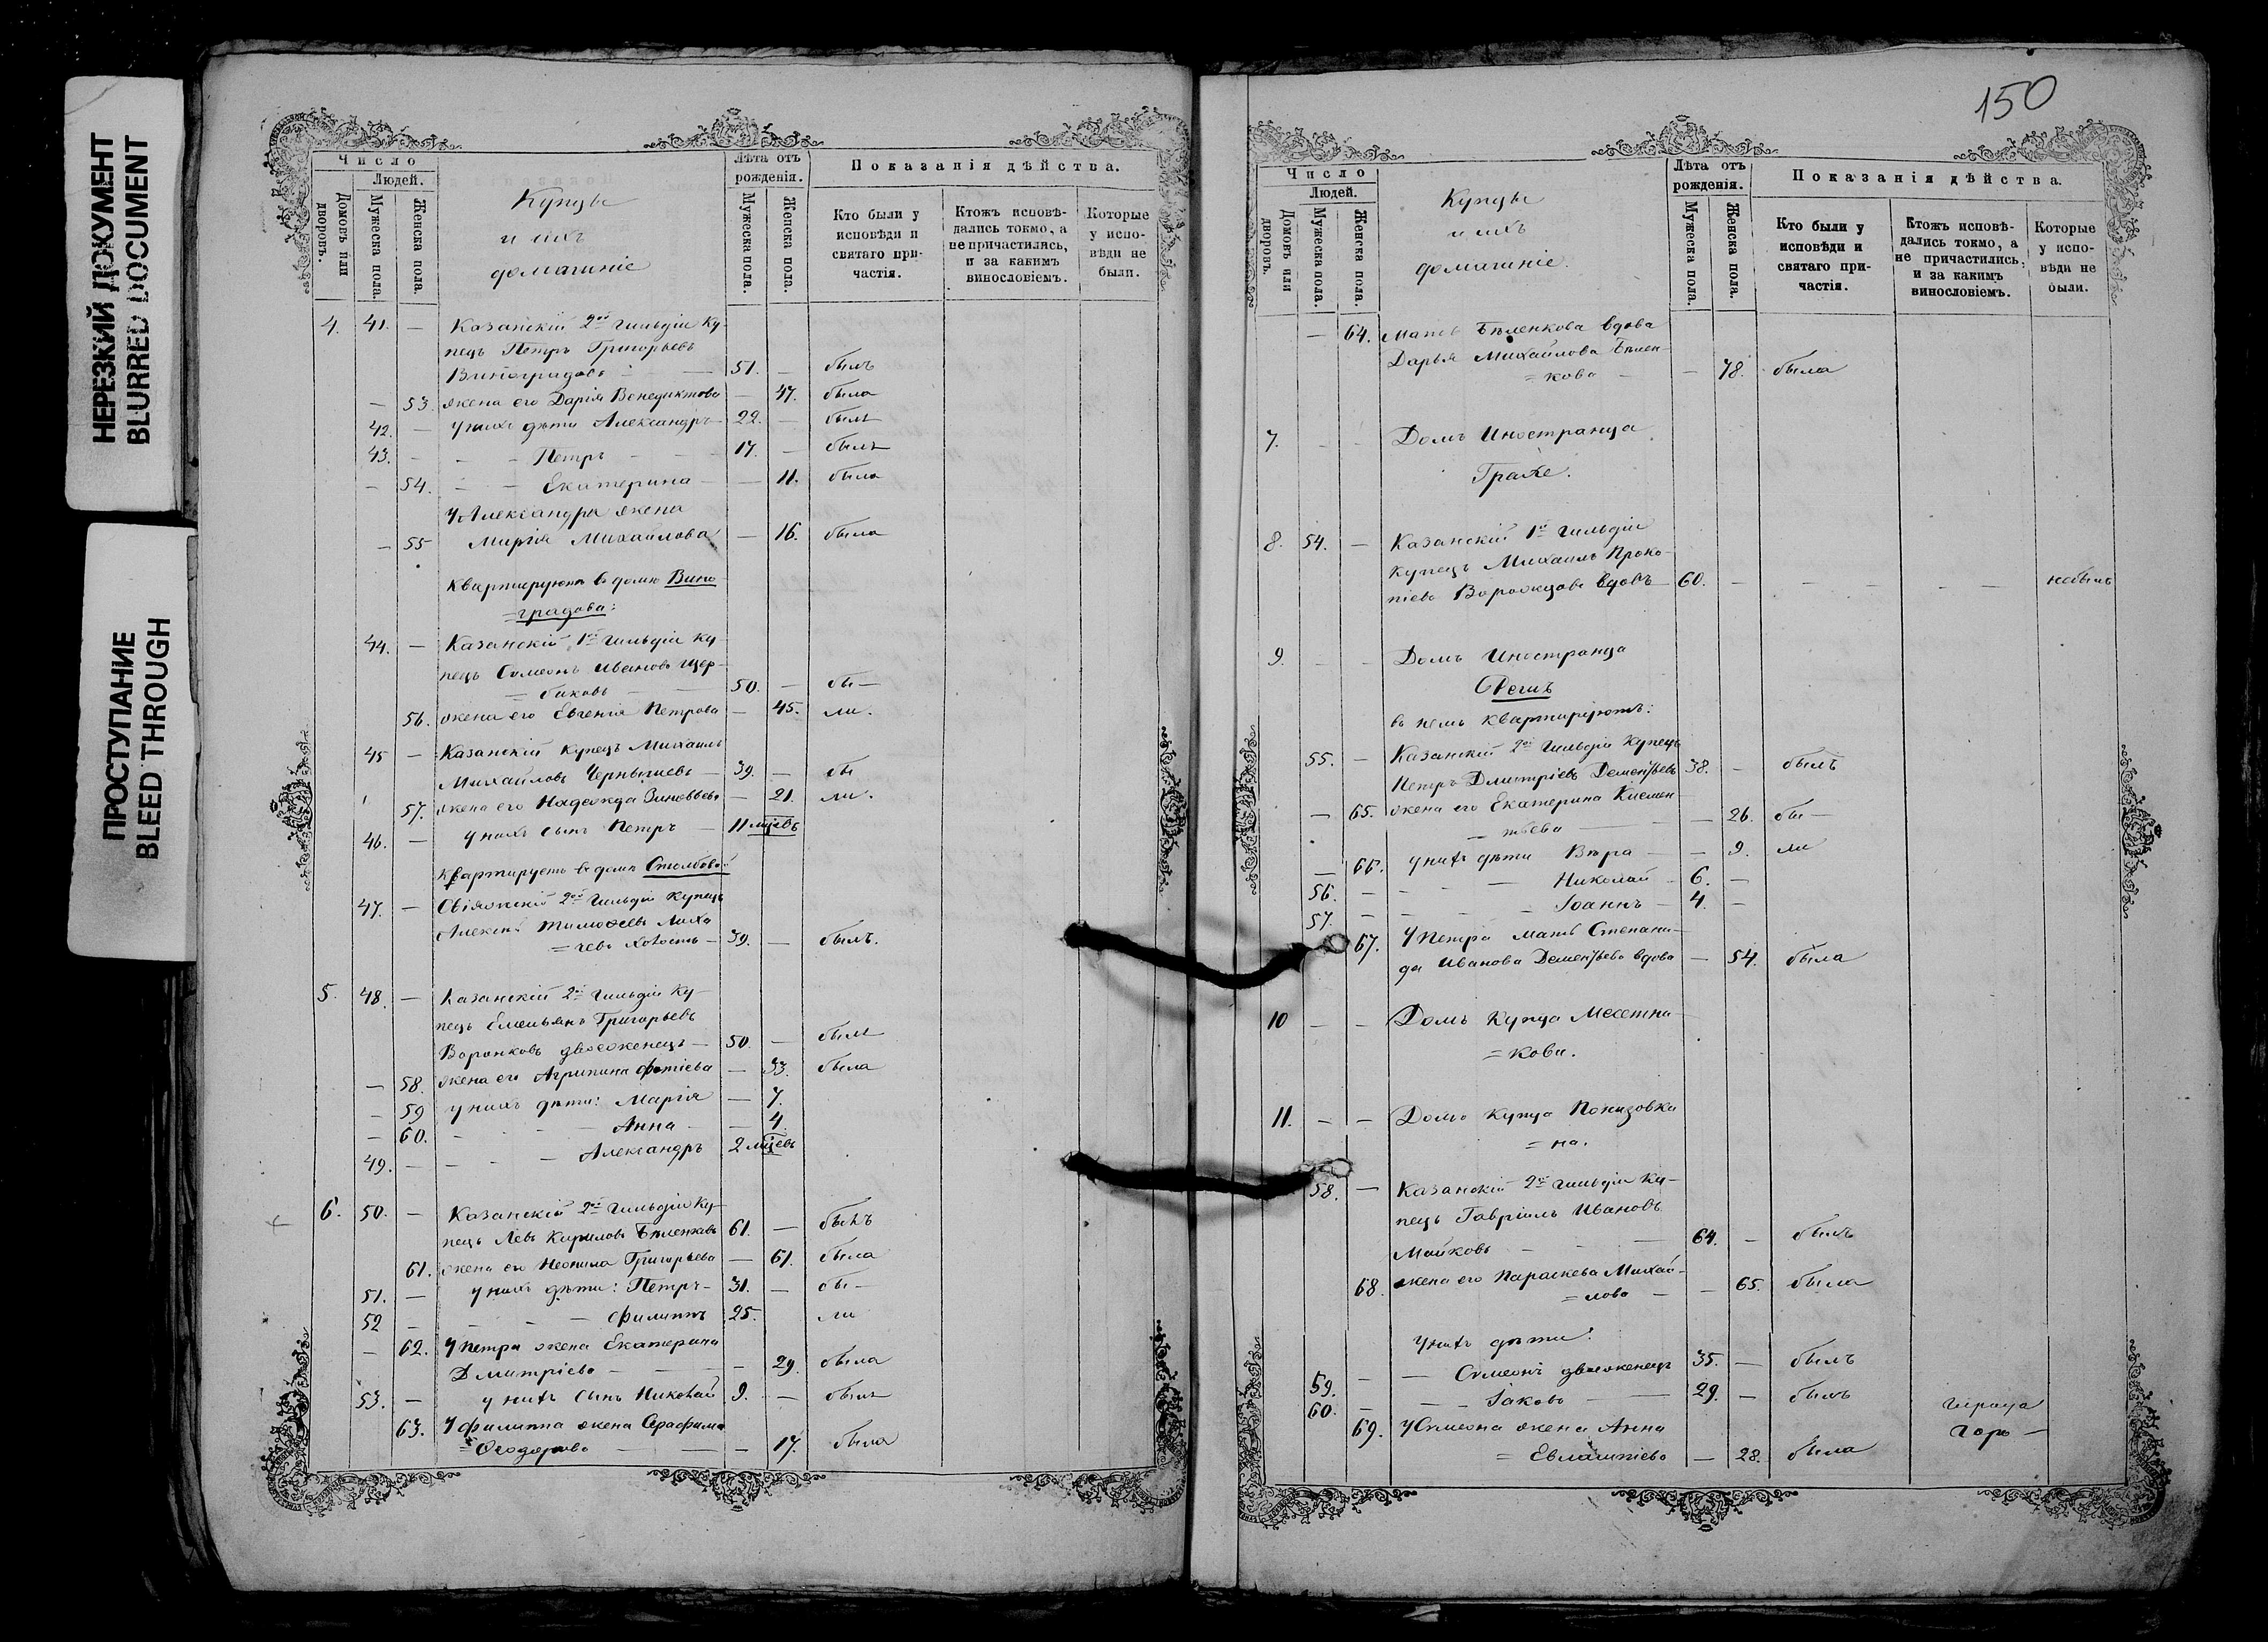 НЕРЕЗКИЙ ДОКУМЕНТ
BLURRED DOCUMENT
ПРОСТУПАНИЕ
BLEED THROUGH
Число
Людей.
Домовъ или дворовъ.
Мужеска пола.
Женска пола.
Купцы
и ихъ
домашніе
Лѣта отъ рожденія.
Мужеска пола.
Женска пола.
Показанія дѣйства.
Кто были у исповѣди и святаго причастія.
Ктожъ исповѣдались токмо, а не причастились, и за какимъ винословіемъ.
Которые у исповѣди не были.
4. 41. — Казанскій 2ой гильдіи ку-
пецъ Петръ Григорьевъ
Виноградовъ — 51. — былъ
— 53. жена его Дарія Венедиктова — 47. была
42. — у нихъ дѣти Александръ — 22. — былъ
43. — — — Петръ — — 17. — былъ
— 54. — — Екатерина — — 11. была
У Александра жена
— 55 Марія Михайлова — 16. была
Квартируютъ въ домѣ Вино
=градова:
44. — Казанскій 1ой гильдіи ку-
пецъ Симеонъ Ивановъ Щер-
= баковъ — 50. — бы —
56. жена его Евгенія Петрова — 45. ли.
45 — Казанскій купецъ Михаилъ
Михайловъ Чернышевъ — 39. — бы
57. жена его Надежда Зиновьева — 21. ли.
46. — у нихъ сынъ Петръ — 11 мцовъ
Квартируетъ въ домѣ Столбовой
47. — Свіяжскій 2ой гильдіи купецъ
Алексѣй Тимоѳеевъ Лиха
=чевъ холостъ — 39. — былъ.
5. 48. — Казанскій 2ой гильдіи ку-
пецъ Емельянъ Григорьевъ
Воронковъ двоеженецъ — 50. — былъ
— 58. жена его Агрипина Фотіева — 33. была
— 59 у нихъ дѣти: Марія — 7.
— 60. — — — Анна — — 4.
49. — — — Александръ 2 мцовъ
6. 50. — Казанскій 2ой гильдіи ку-
пецъ Левъ Кириловъ Бѣленковъ 61. — былъ
61. жена его Неонила Григорьева — 61. была
51. — у нихъ дѣти: Петръ — 31. — бы —
52 — — — — Филиппъ 25. ли
— 62. У Петра жена Екатерина
Дмитріева — — — 29. была
53. — у нихъ сынъ Николай 9. — былъ
63. У Филиппа жена Серафима
= Ѳеодорова — — — 17. была
150
Число
Людей.
Домовъ или дворовъ.
Мужеска пола.
Женска пола.
Купцы
и ихъ
домашніе.
Лѣта отъ рожденія.
Мужеска пола.
Женска пола.
Показанія дѣйства.
Кто были у исповѣди и святаго причастія.
Ктожъ исповѣдались токмо, а не причастились, и за какимъ винословіемъ.
Которые у исповѣди не были.
— 64. Мать Бѣленкова вдова
Дарья Михайлова Бѣлен-
= кова — — 78. была
7. — — Домъ Иностранца
Грахе.
8. 54. — Казанскій 1й гильдіи
купецъ Михаилъ Проко-
піевъ Ворожцовъ вдовъ — 60. — — — — небылъ
9. — — Домъ Иностранца
въ немъ квартируютъ:
55. — Казанскій 2ой гильдіи купецъ
Петръ Дмитріевъ Дементьевъ 38. — былъ
— 65. жена его Екатерина Клемен
= тьева — — 26. бы —
— 66. у нихъ дѣти Вѣра — — 9. ли
56. — — — Николай — 6. —
57. — — — Іоаннъ — 4. —
67. У Петра мать Степани-
да Иванова Дементьева вдова — 54. была
10 — — Домъ купца Месетни
= кова.
11. — — Домъ купца Понизовки
= на.
58. — Казанскій 2ой гильдіи ку-
пецъ Гавріилъ Ивановъ
Майковъ — — 64. — былъ
68. жена его Параскева Михай-
= лова — — 65. была
У нихъ дѣти:
59. — — Симеонъ двоеженецъ 35. — былъ
60. — — — Іаковъ — — 29. — былъ
69. У Симеона жена Анна
= Евлампіева — 28. была